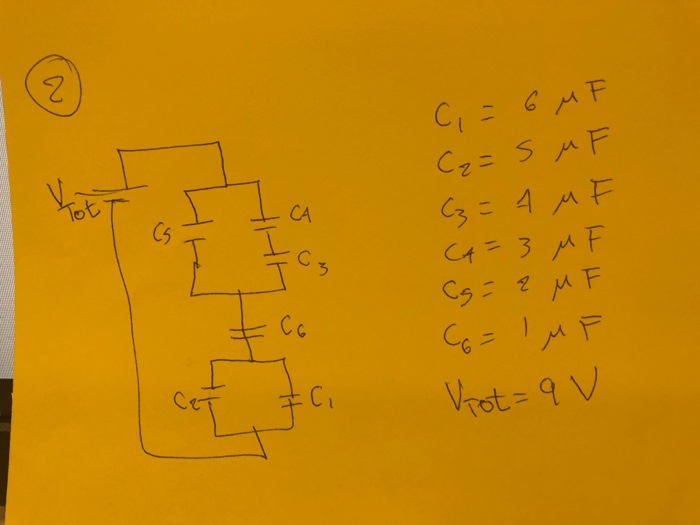 2
V Tot
C5
C4
C3
C6
C2
C1
C1 = 6 μF
C2 = 5 μF
C3 = 4 μF
C4 = 3 μF
C5 = 2 μF
C6 = 1 μF
VTot = 9 V